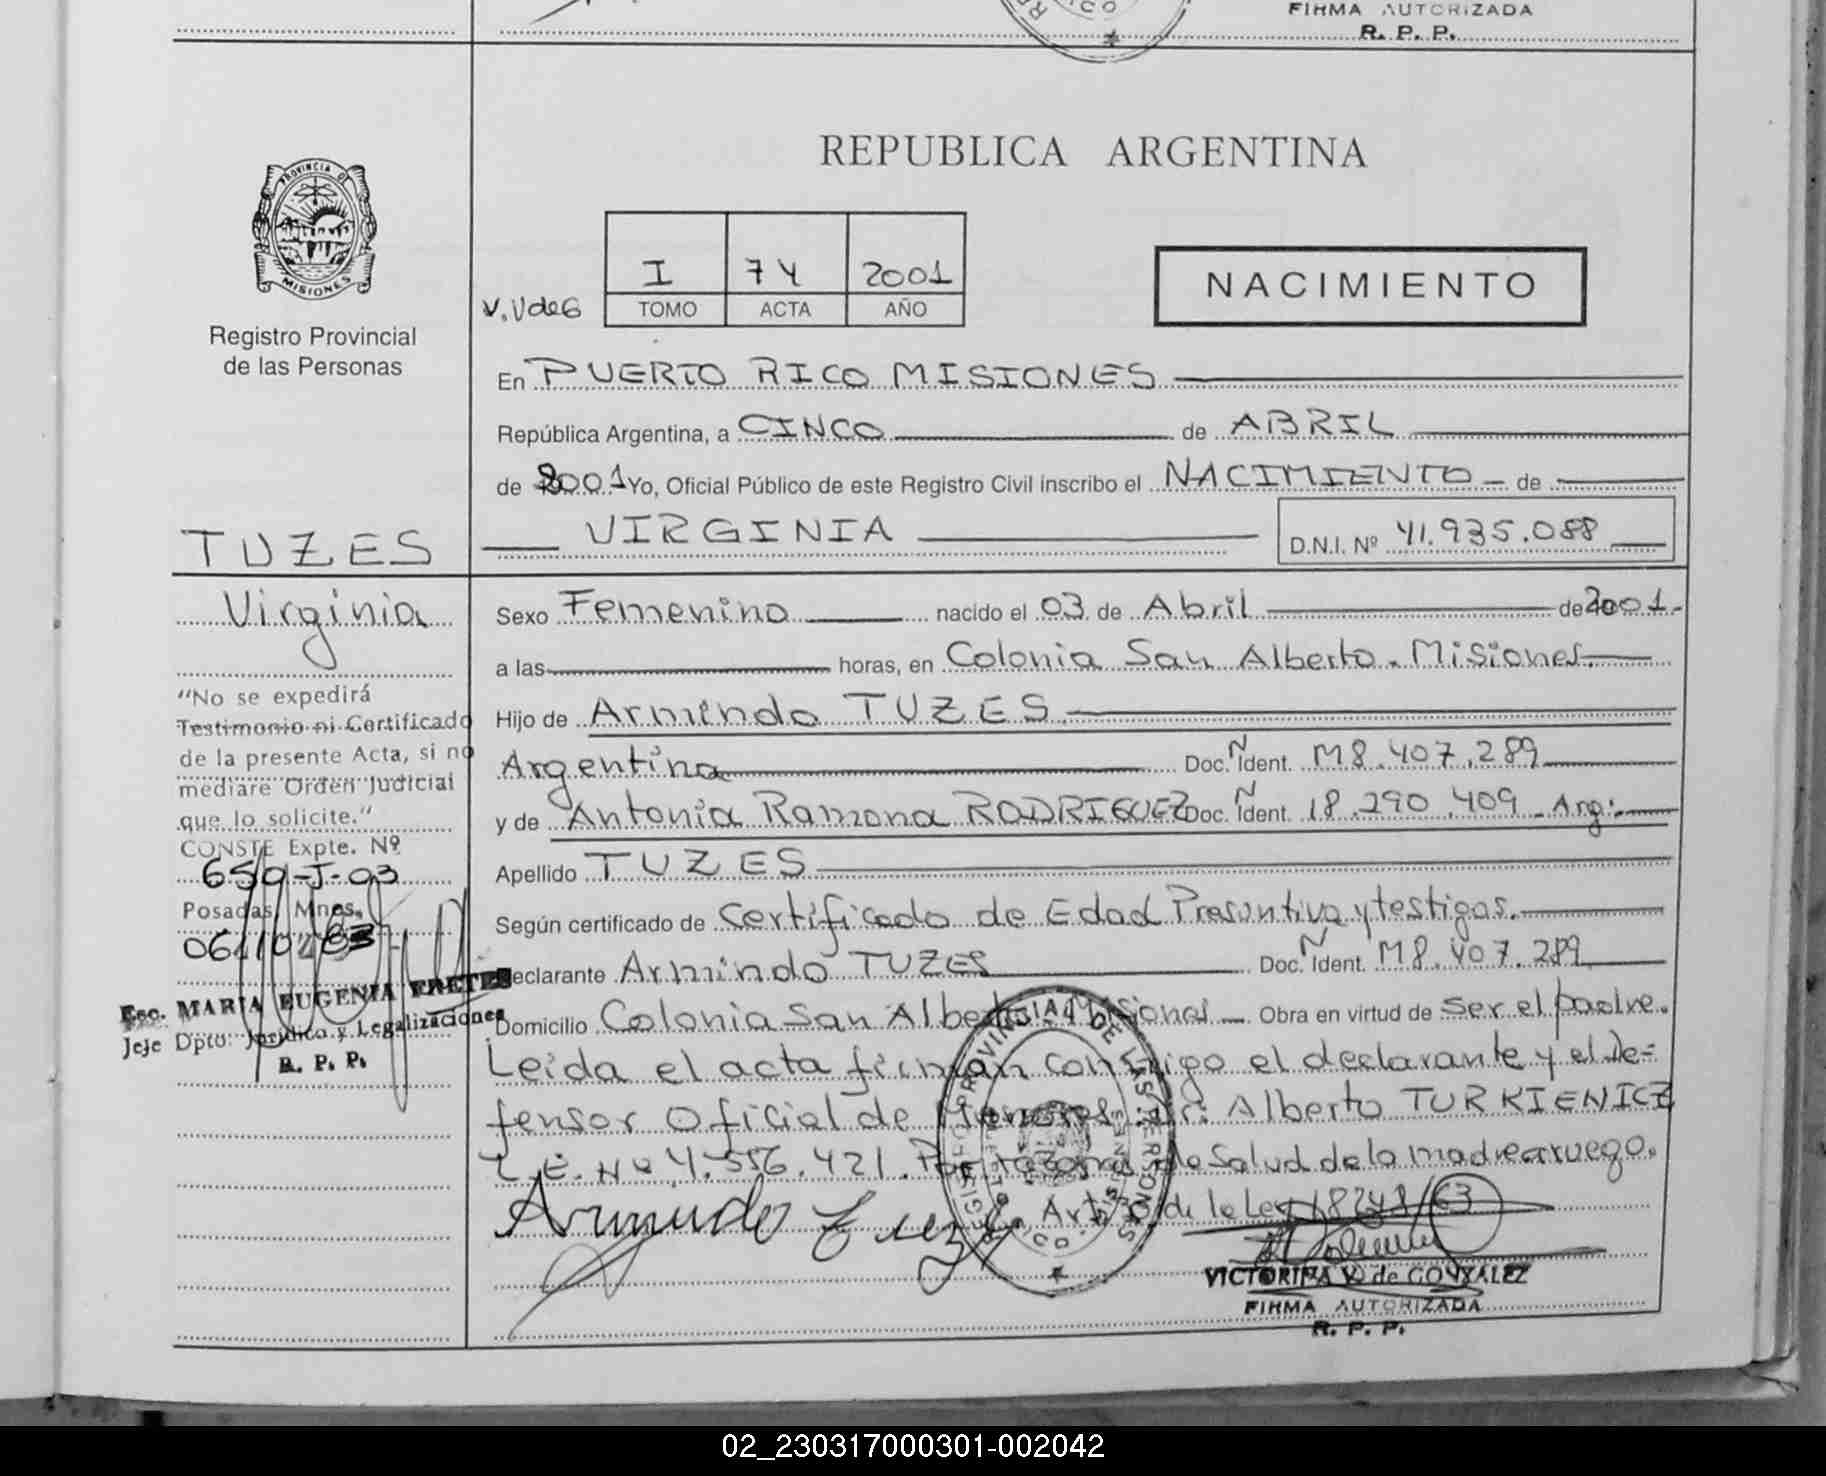 FIRMA AUTORIZADA
R. P. P.
REPUBLICA ARGENTINA
PROVINCIA D
MISIONES
Registro Provincial
de las Personas
I 74 2001
V. V de G TOMO ACTA AÑO
NACIMIENTO
En PUERTO RICO MISIONES
República Argentina, a CINCO de ABRIL
de 2001 Yo, Oficial Público de este Registro Civil inscribo el NACIMIENTO de
VIRGINIA D.N.I. Nº 41.935.088
TUZES
Virginia
"No se expedirá
Testimonio ni Certificado
de la presente Acta, si no
mediare Orden Judicial
que lo solicite."
CONSTE Expte. Nº
659-J-03
Posadas, Mnes,
Esc. MARIA EUGENIA FRETES
Jeje Dpto. Jurídico y Legalizaciones
R. P. P.
Sexo Femenino nacido el 03 de Abril de 2001
a las horas, en Colonia San Alberto. Misiones
Hijo de Armindo TUZES
Argentina Doc. N Ident. M8.407.289
y de Antonia Ramona RODRIGUEZ Doc. N Ident. 18.290.409 Arg:
Apellido TUZES
Según certificado de Certificado de Edad Presuntiva y testigos.
Declarante Armindo TUZES Doc. N Ident. M8.407.289
Domicilio Colonia San Alberto Misiones Obra en virtud de Ser el padre.
Leida el acta firman conmigo el declarante y el De=
fensor Oficial de Menores Dr: Alberto TURKIENICZ
L.E. Nº 4.556.421. Por razones de Salud de la madre a ruego.
Art. de la Ley 18248/63
Armindo Tuzes
REGISTRO PROVINCIAL DE LAS PERSONAS
VICTORINA V. de GONZALEZ
FIRMA AUTORIZADA
R. P. P.
02_230317000301-002042